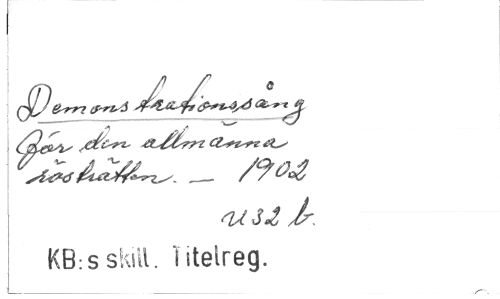 Demonstrationssång
för den allmänna
rösträtten. — 1902
U 32 b.
KB:s skill. Titelreg.